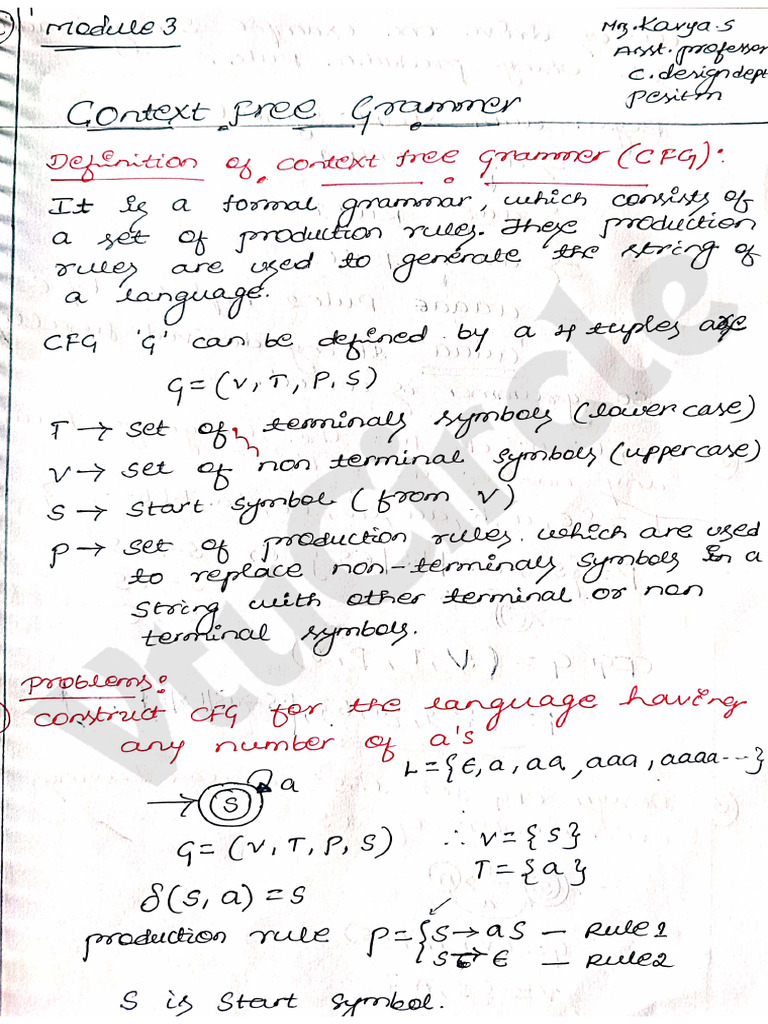 Module 3
Mrs. Kavya.S
Asst. professor
C. design dept
pesitm
Context free Grammer
Definition of context free Grammer (CFG):
It is a formal grammar, which consists of
a set of production rules. These production
rules are used to generate the string of
a language.
CFG 'G' can be defined by a 4 tuples are
G = (V, T, P, S)
T → set of terminals symbols (lower case)
V → set of non terminal symbols (uppercase)
S → start symbol (from V)
P → set of production rules. which are used
to replace non-terminals symbols in a
string with other terminal or non
terminal symbols.
problems:
construct CFG for the language having
any number of a's
L = {ϵ, a, aa, aaa, aaaa---}
S a
G = (V, T, P, S) ∴ V = {S}
T = {a}
δ(S, a) = S
production rule P = {S → aS — Rule 1
S → ϵ — Rule 2
S is start symbol.
VtuCircle